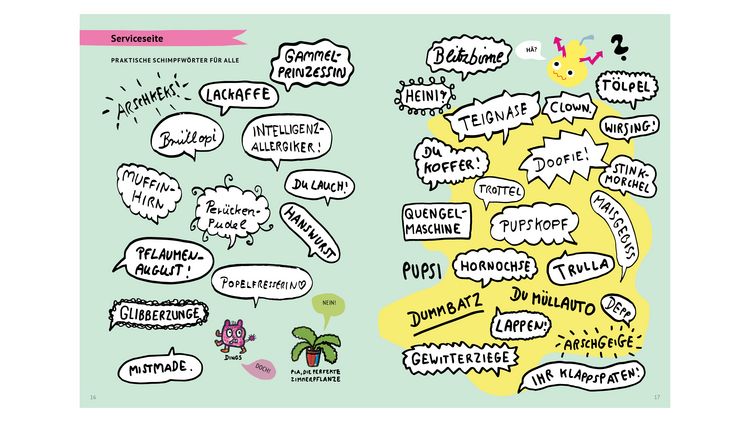 Serviceseite
PRAKTISCHE SCHIMPFWÖRTER FÜR ALLE
GAMMEL-
PRINZESSIN
ARSCHKEKS!
LACKAFFE
Brüllopi
INTELLIGENZ-
ALLERGIKER!
MUFFIN-
HIRN
DU LAUCH!
Perücken-
Pudel
HANSWURST
PFLAUMEN-
AUGUST!
POPELFRESSERIN
GLIBBERZUNGE
NEIN!
DINGS
DOCH!
PIA, DIE PERFEKTE
ZIMMERPFLANZE
MISTMADE.
16
Blitzbirne
HÄ?
?
HEINI!
TEIGNASE
CLOWN.
TÖLPEL
WIRSING!
DU
KOFFER!
DOOFIE!
STINK-
MORCHEL
TROTTEL
MAISGEBISS
QUENGEL-
MASCHINE
PUPSKOPF
PUPSI
HORNOCHSE
TRULLA
DUMMBATZ
DU MÜLLAUTO
DEPP
LAPPEN!
ARSCHGEIGE
GEWITTERZIEGE
IHR KLAPPSPATEN!
17